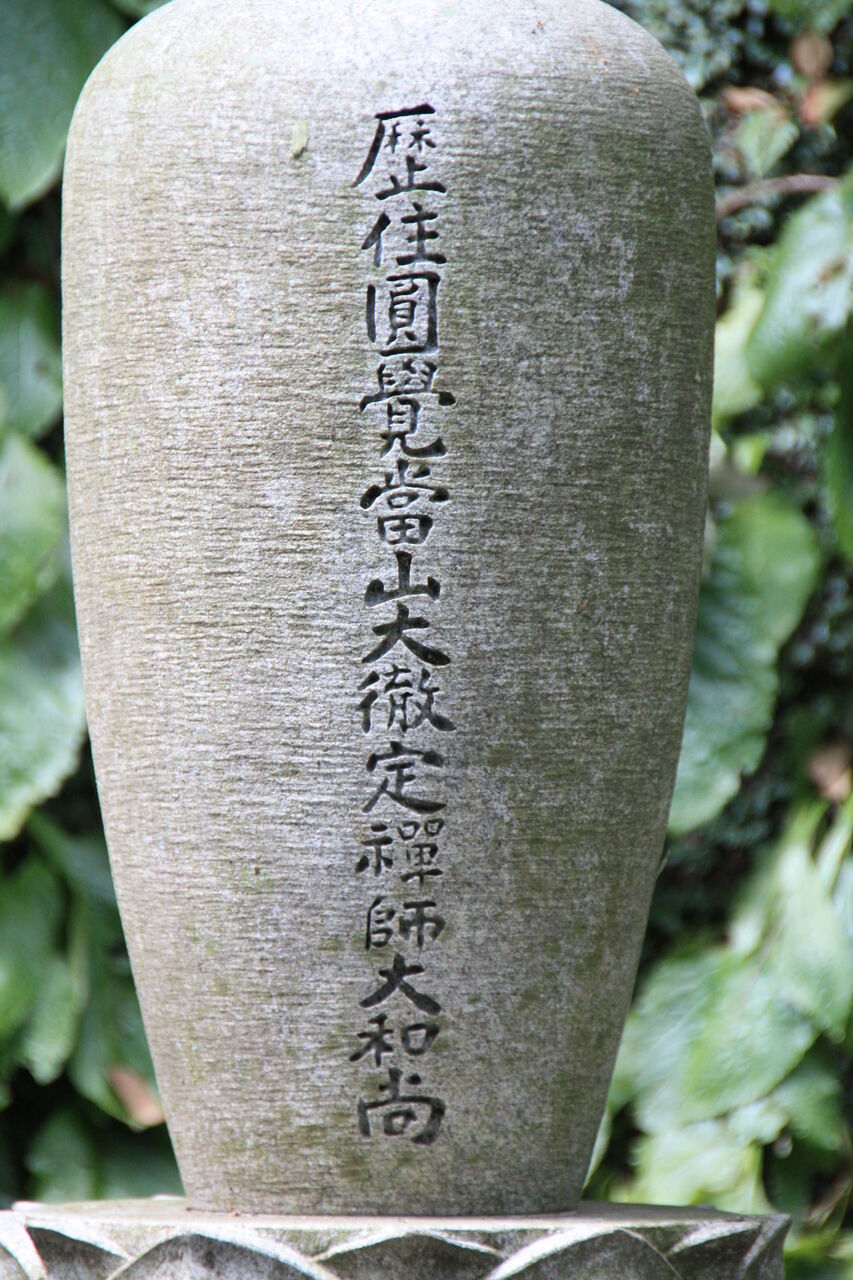 歴住圓覺當山大徹定禪師大和尚